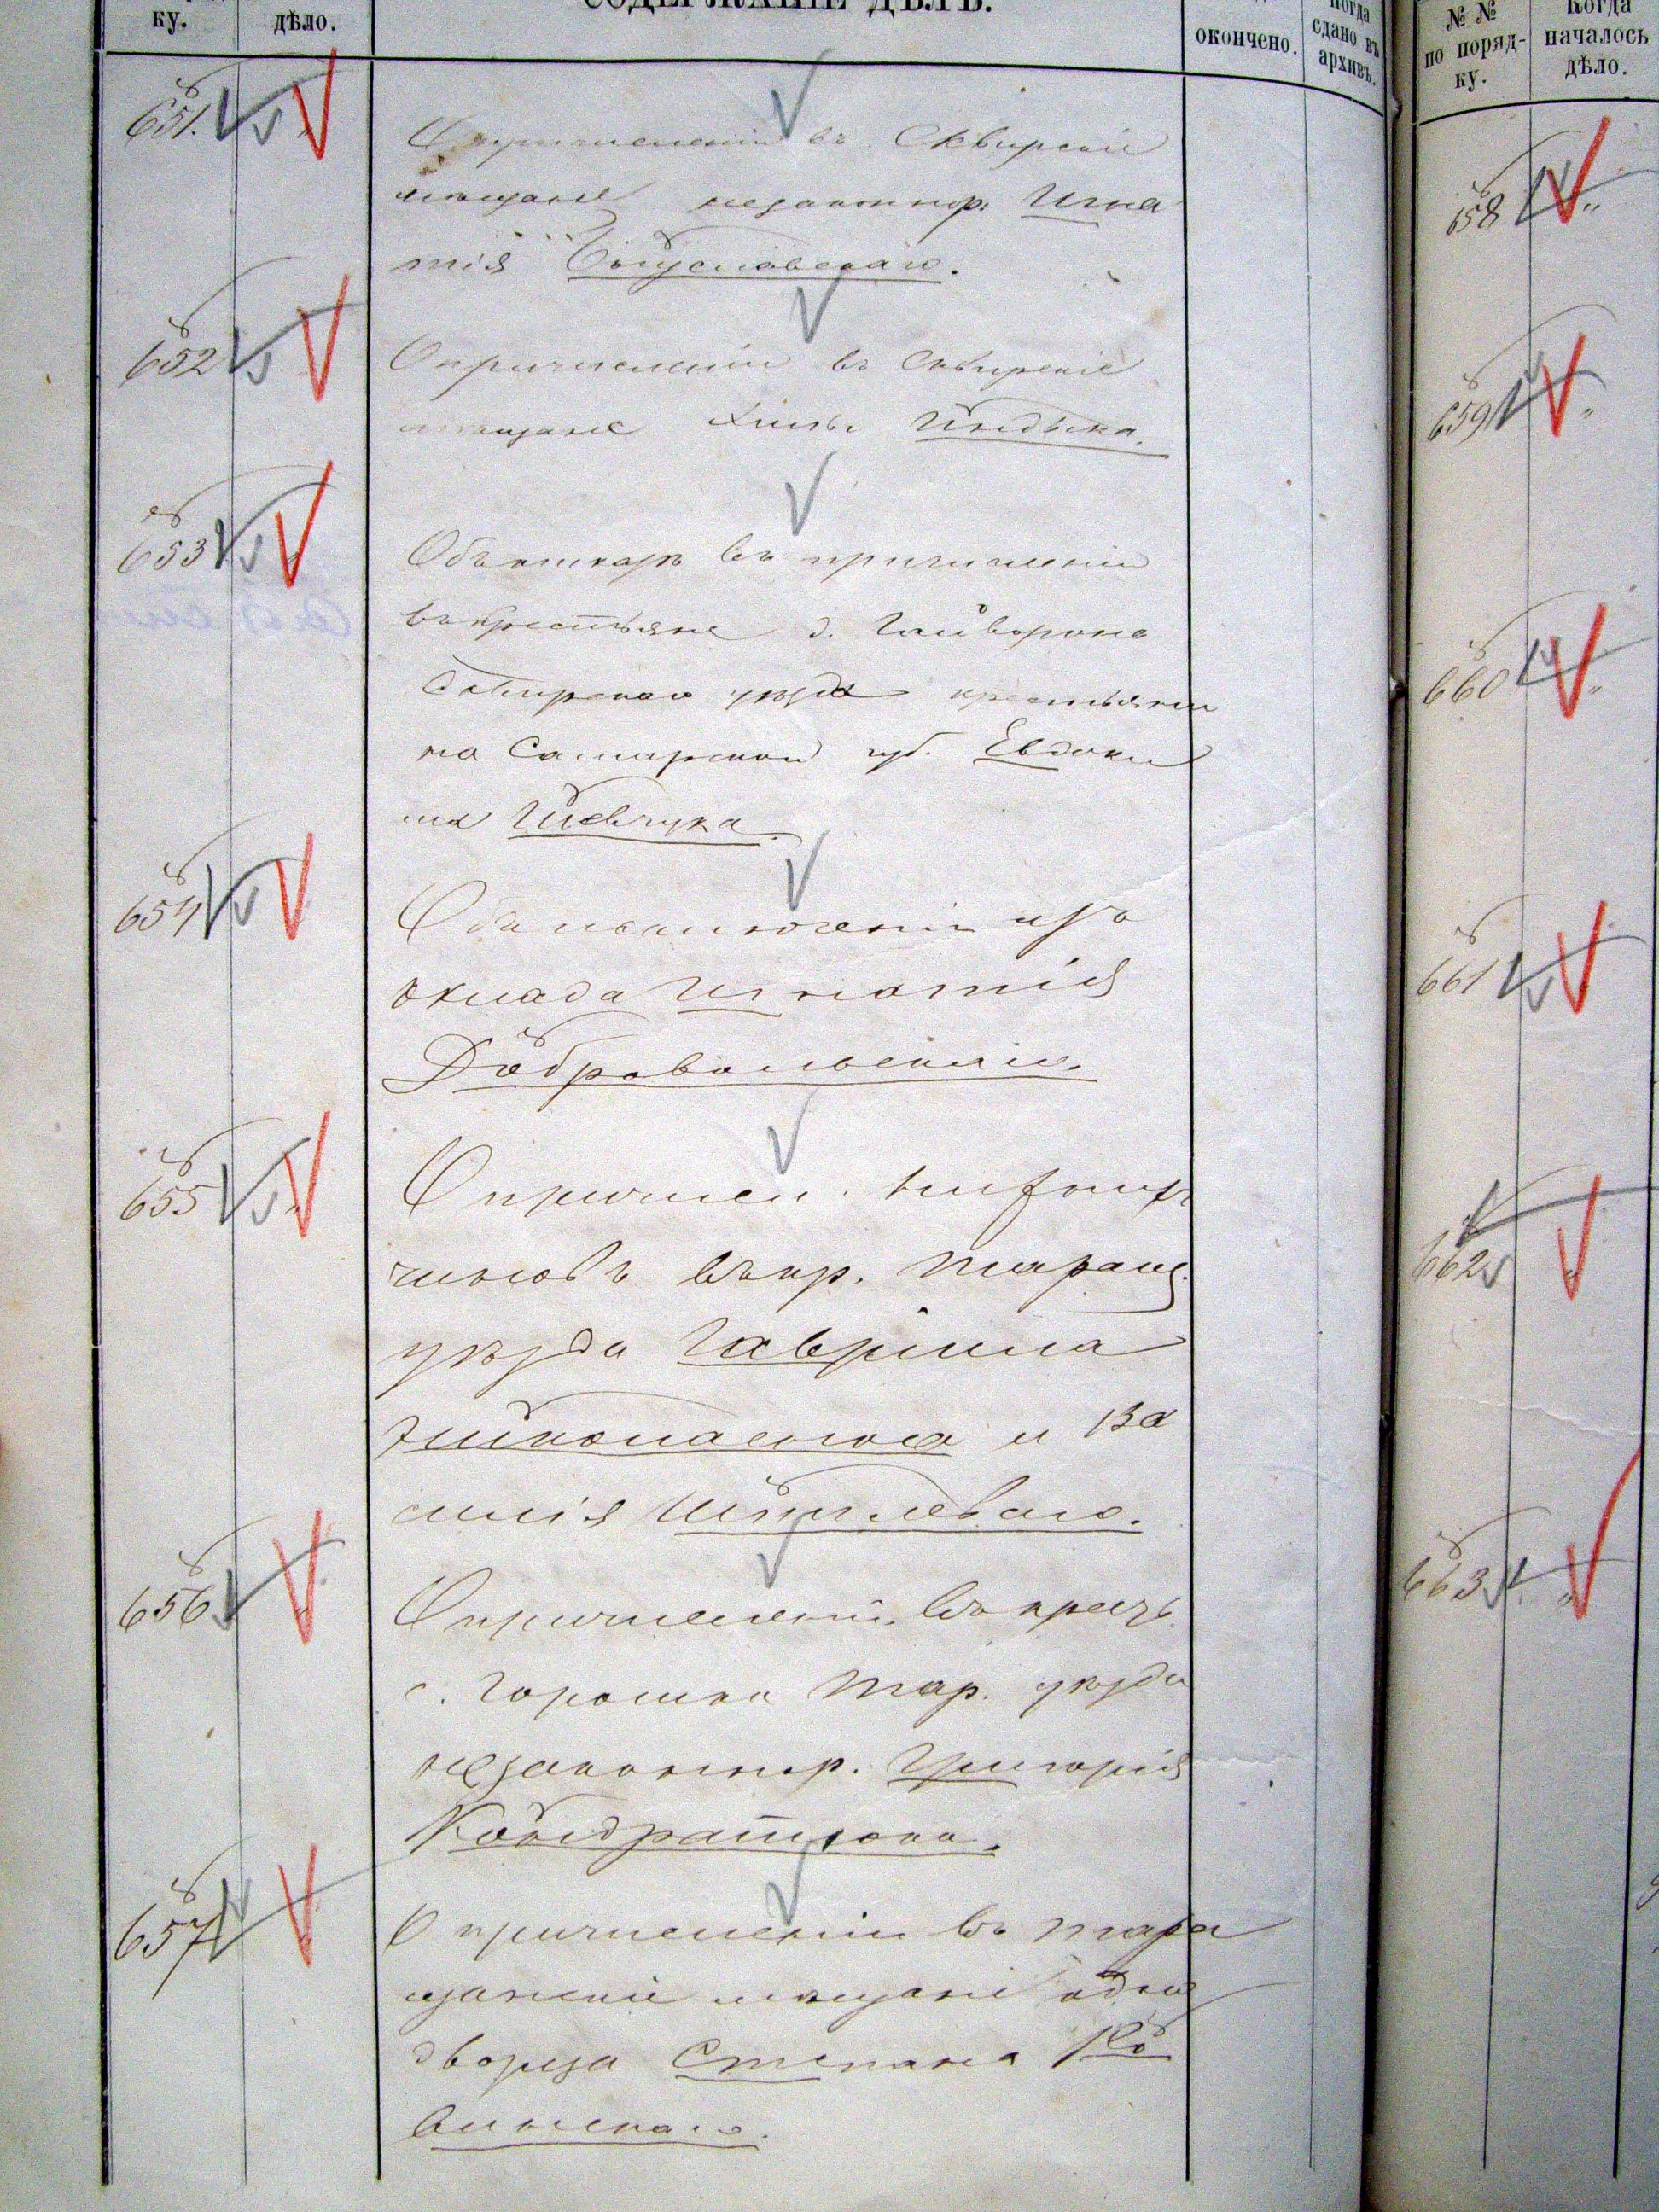 ку.
дѣло.
СОДЕРЖАНІЕ ДѢЛЪ.
окончено.
Когда
сдано въ
архивъ.
651.
О причисленіи въ Сквирскіе
мѣщане незаконнор. Игна
тія Богуславскаго.
652
О причисленіи въ Сквирскіе
мѣщане Индыка.
653
Объ отказѣ въ причисленіи
въ крестьяне д. Гайворона
Сквирскаго уѣзда крестьяни
на Самарской губ. Евдоки
ма Шевчука
654
Объ исключеніи изъ
оклада Игнатія
Добровольскаго.
655
О причислен.
въ кр. Таращ.
уѣзда Гавріила
и Ва
силія
656
О причисленіи въ крест.
с. Горошка Тар. уѣзда
незаконнор. Григорія
Кондратюка.
657
О причисленіи въ Тара
щанскіе мѣщане одно
дворца Степана Ко
винскаго.
№ №
по поряд-
ку.
Когда
началось
дѣло.
658
659
660
661
662
663